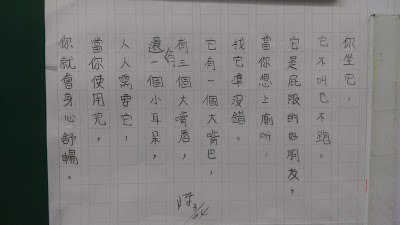 你坐它，
它不叫也不跑。
它是屁股的好朋友，
當你想上廁所，
找它準沒錯。
它有一個大嘴巴，
有三個大嘴唇，
還有一個小耳朵，
人人需要它，
當你使用完，
你就會身心舒暢。